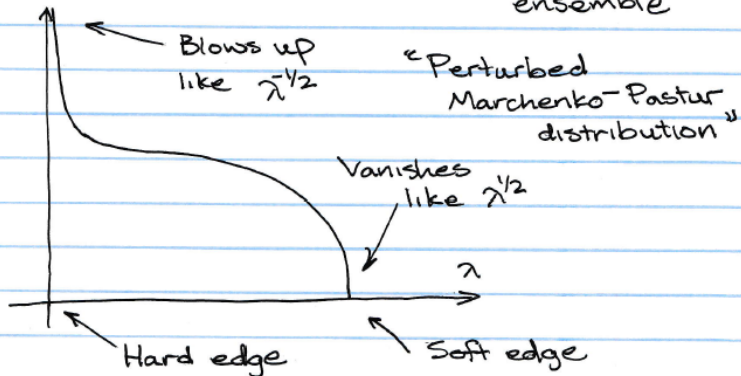 ensemble
Blows up
like λ^-1/2
"Perturbed
Marchenko-Pastur
distribution"
Vanishes
like λ^1/2
λ
Hard edge
Soft edge